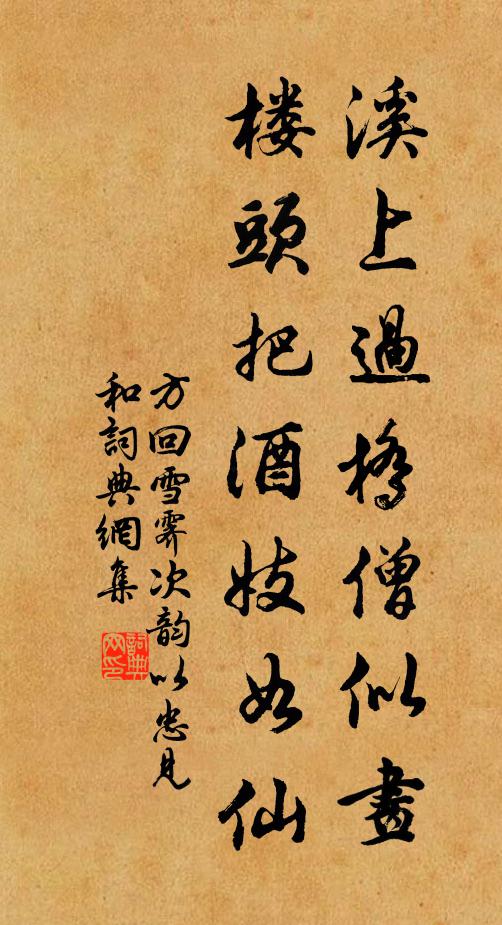 溪上過橋僧似畫
楼頭把酒妓如仙
方回雪霽次韵以忠見
和詞典網集
詞典网印